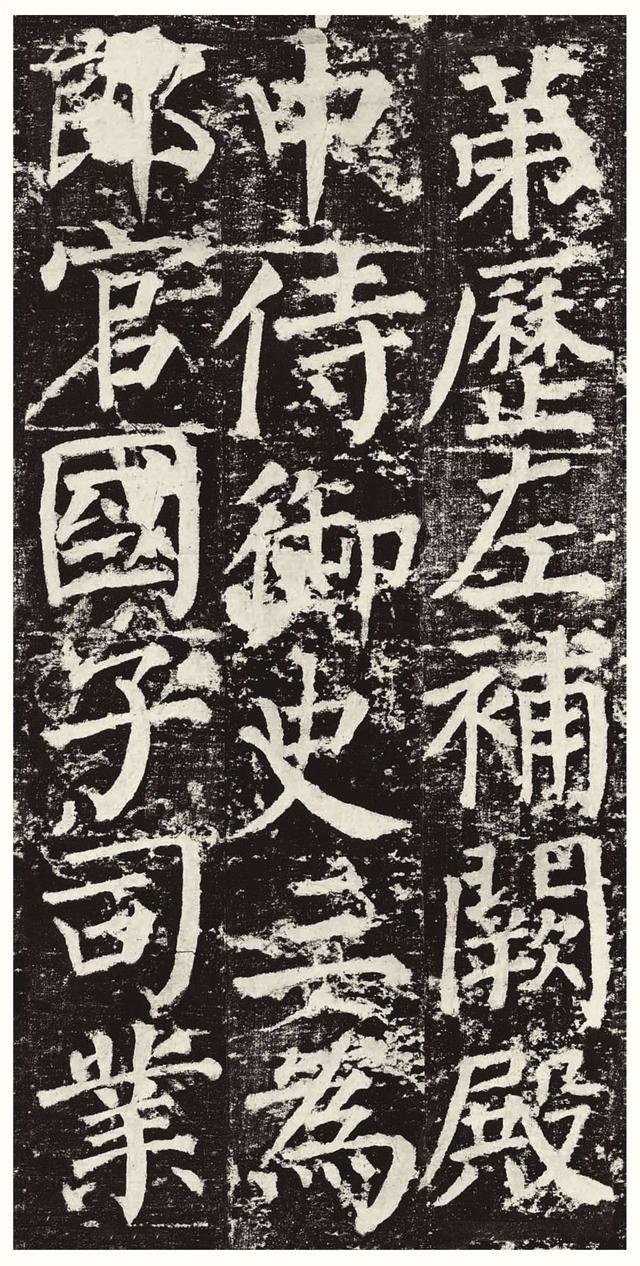 第歷左補闕殿
中侍御史三為
郎官國子司業